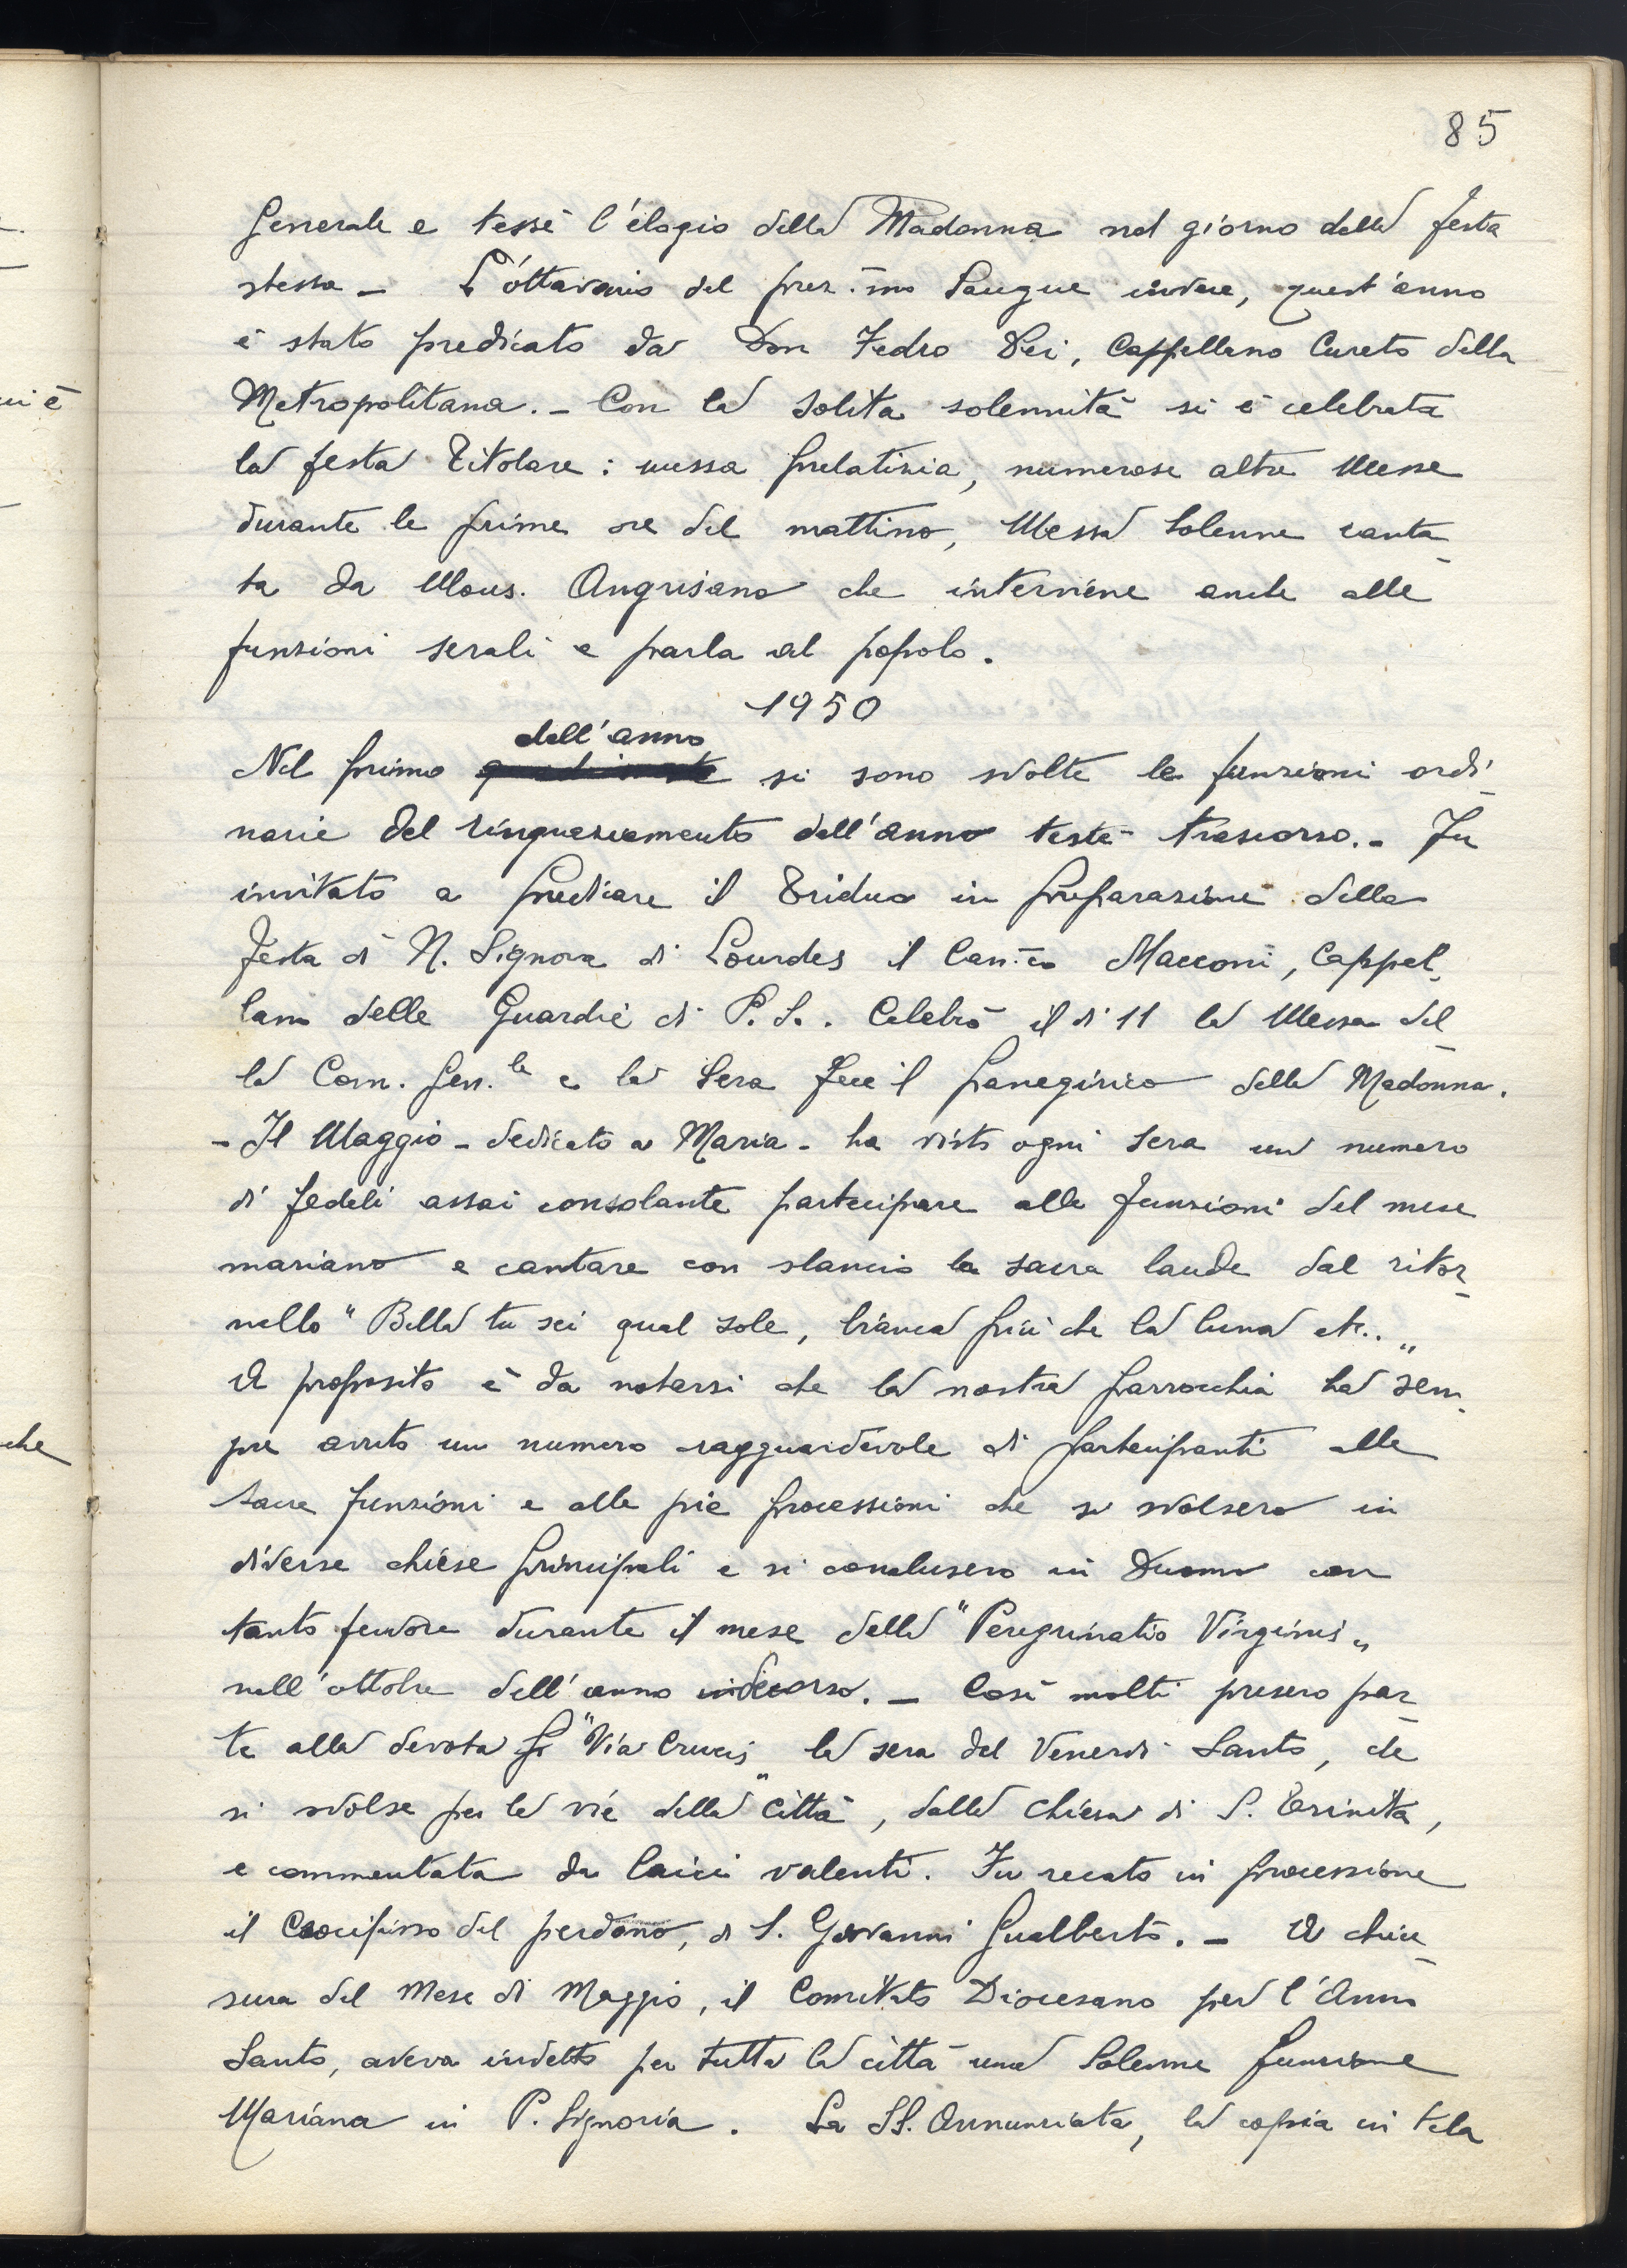 85
Generale e tessè l'élogio della Madonna nel giorno della festa
stessa - L'ottavario del prez.mo Sangue invece, quest'anno
è stato predicato da Don Fedro Dei, Cappellano Curato della
Metropolitana. - Con la solita solennità si è celebrata
la festa Titolare: messa prelatizia, numerose altre Messe
durante le prime ore del mattino, Messa Solenne canta-
ta da Mons. Angrisano che interviene anche alle
funzioni serali e parla al popolo.
1950
dell'anno
Nel primo si sono svolte le funzioni ordi-
narie del ringraziamento dell'anno testè trascorso. - Fu
invitato a predicare il Triduo in preparazione della
Festa di N. Signora di Lourdes il Can.co Macconi, Cappel-
lano delle Guardie di P. S.. Celebrò il dì 11 la Messa del-
la Com. Gen.le e la Sera fece il panegirico della Madonna.
- Il Maggio - dedicato a Maria - ha visto ogni sera un numero
di fedeli assai consolante partecipare alle funzioni del mese
mariano e cantare con slancio la sacra laude dal ritor-
nello "Bella tu sei qual sole, bianca più che la luna etc.."
A proposito è da notarsi che la nostra parrocchia ha sem-
pre avuto un numero ragguardevole di partecipanti alle
sacre funzioni e alle pie processioni che si svolsero in
diverse chiese principali e si conclusero in Duomo con
tanto fervore durante il mese della "Peregrinatio Virginis"
nell'ottobre dell'anno decorso. - Così molti presero par-
te alla devota "Via Crucis" la sera del Venerdì Santo, che
si svolse per le vie della città, dalla chiesa di S. Trinita,
e commentata da laici valenti. Fu recato in processione
il Crocifisso del perdono, di S. Giovanni Gualberto. - A chiu-
sura del Mese di Maggio, il Comitato Diocesano per l'Anno
Santo, aveva indetto per tutta la città una Solenne funzione
Mariana in P. Signoria. La SS. Annunziata, la copia in tela
ui è
che